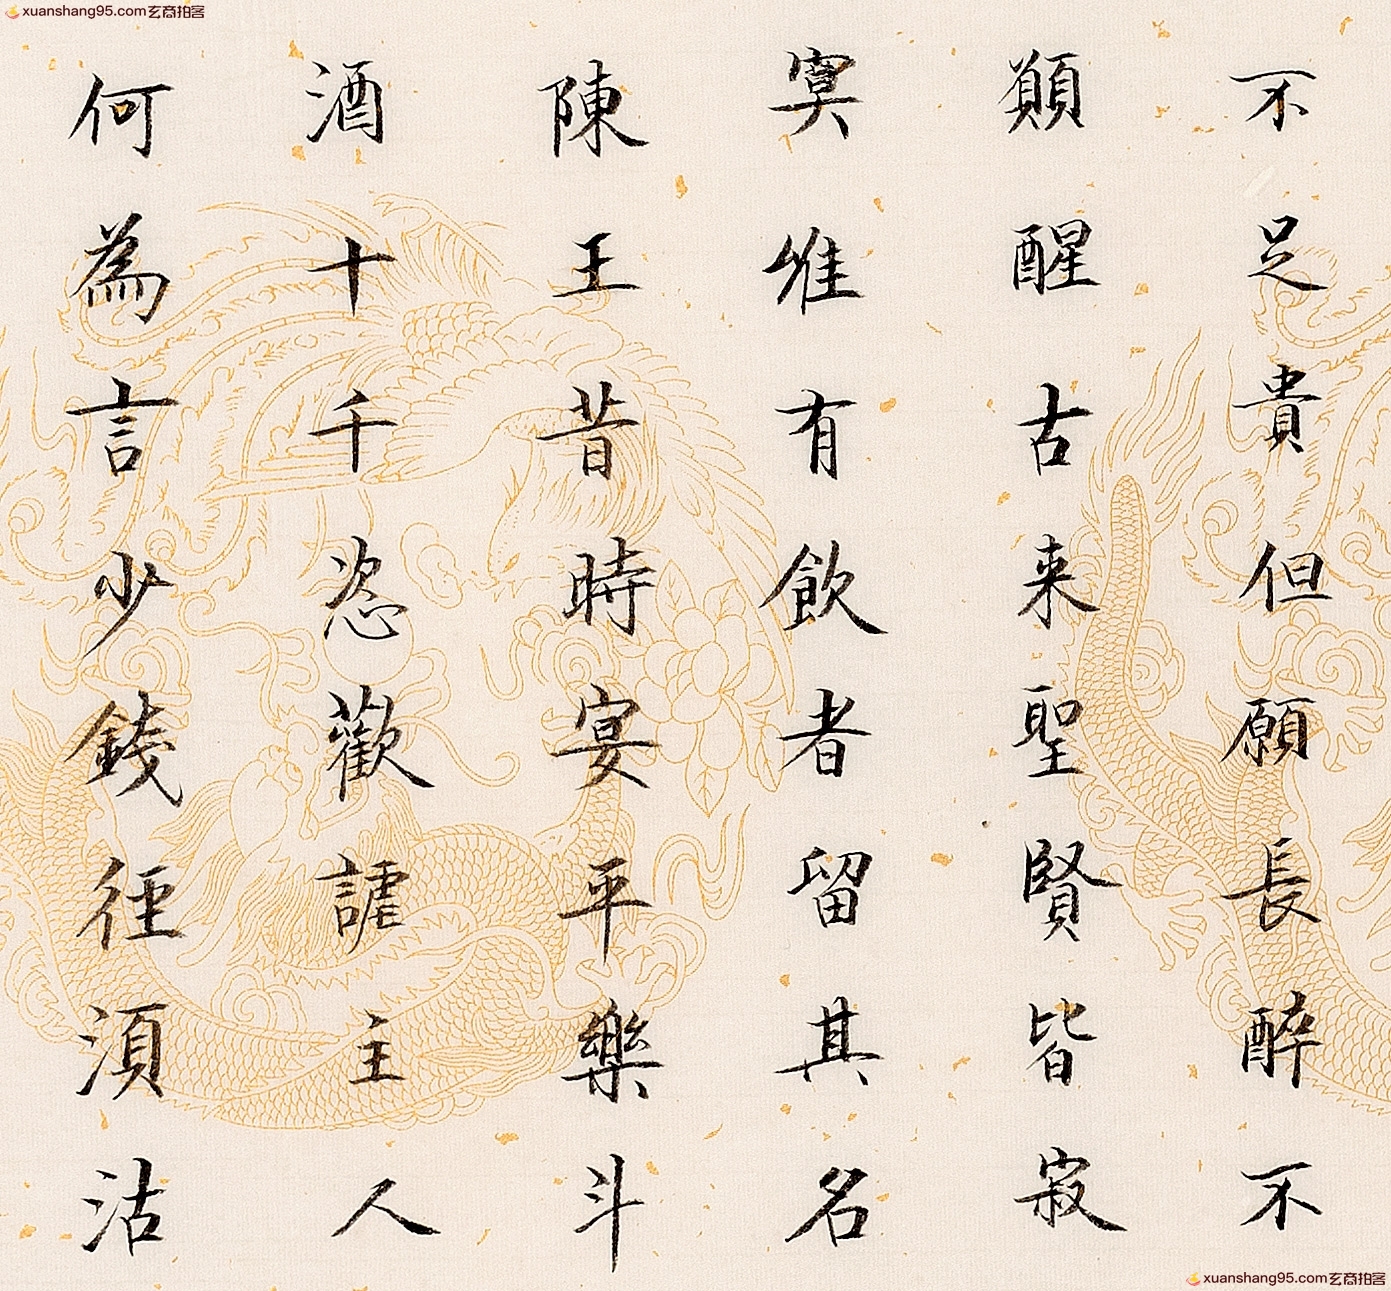 xuanshang95.com玄商拍客
不足貴但願長醉不
願醒古来聖賢皆寂
寞惟有飲者留其名
陳王昔時宴平樂斗
酒十千恣歡謔主人
何為言少錢徑須沽
xuanshang95.com玄商拍客